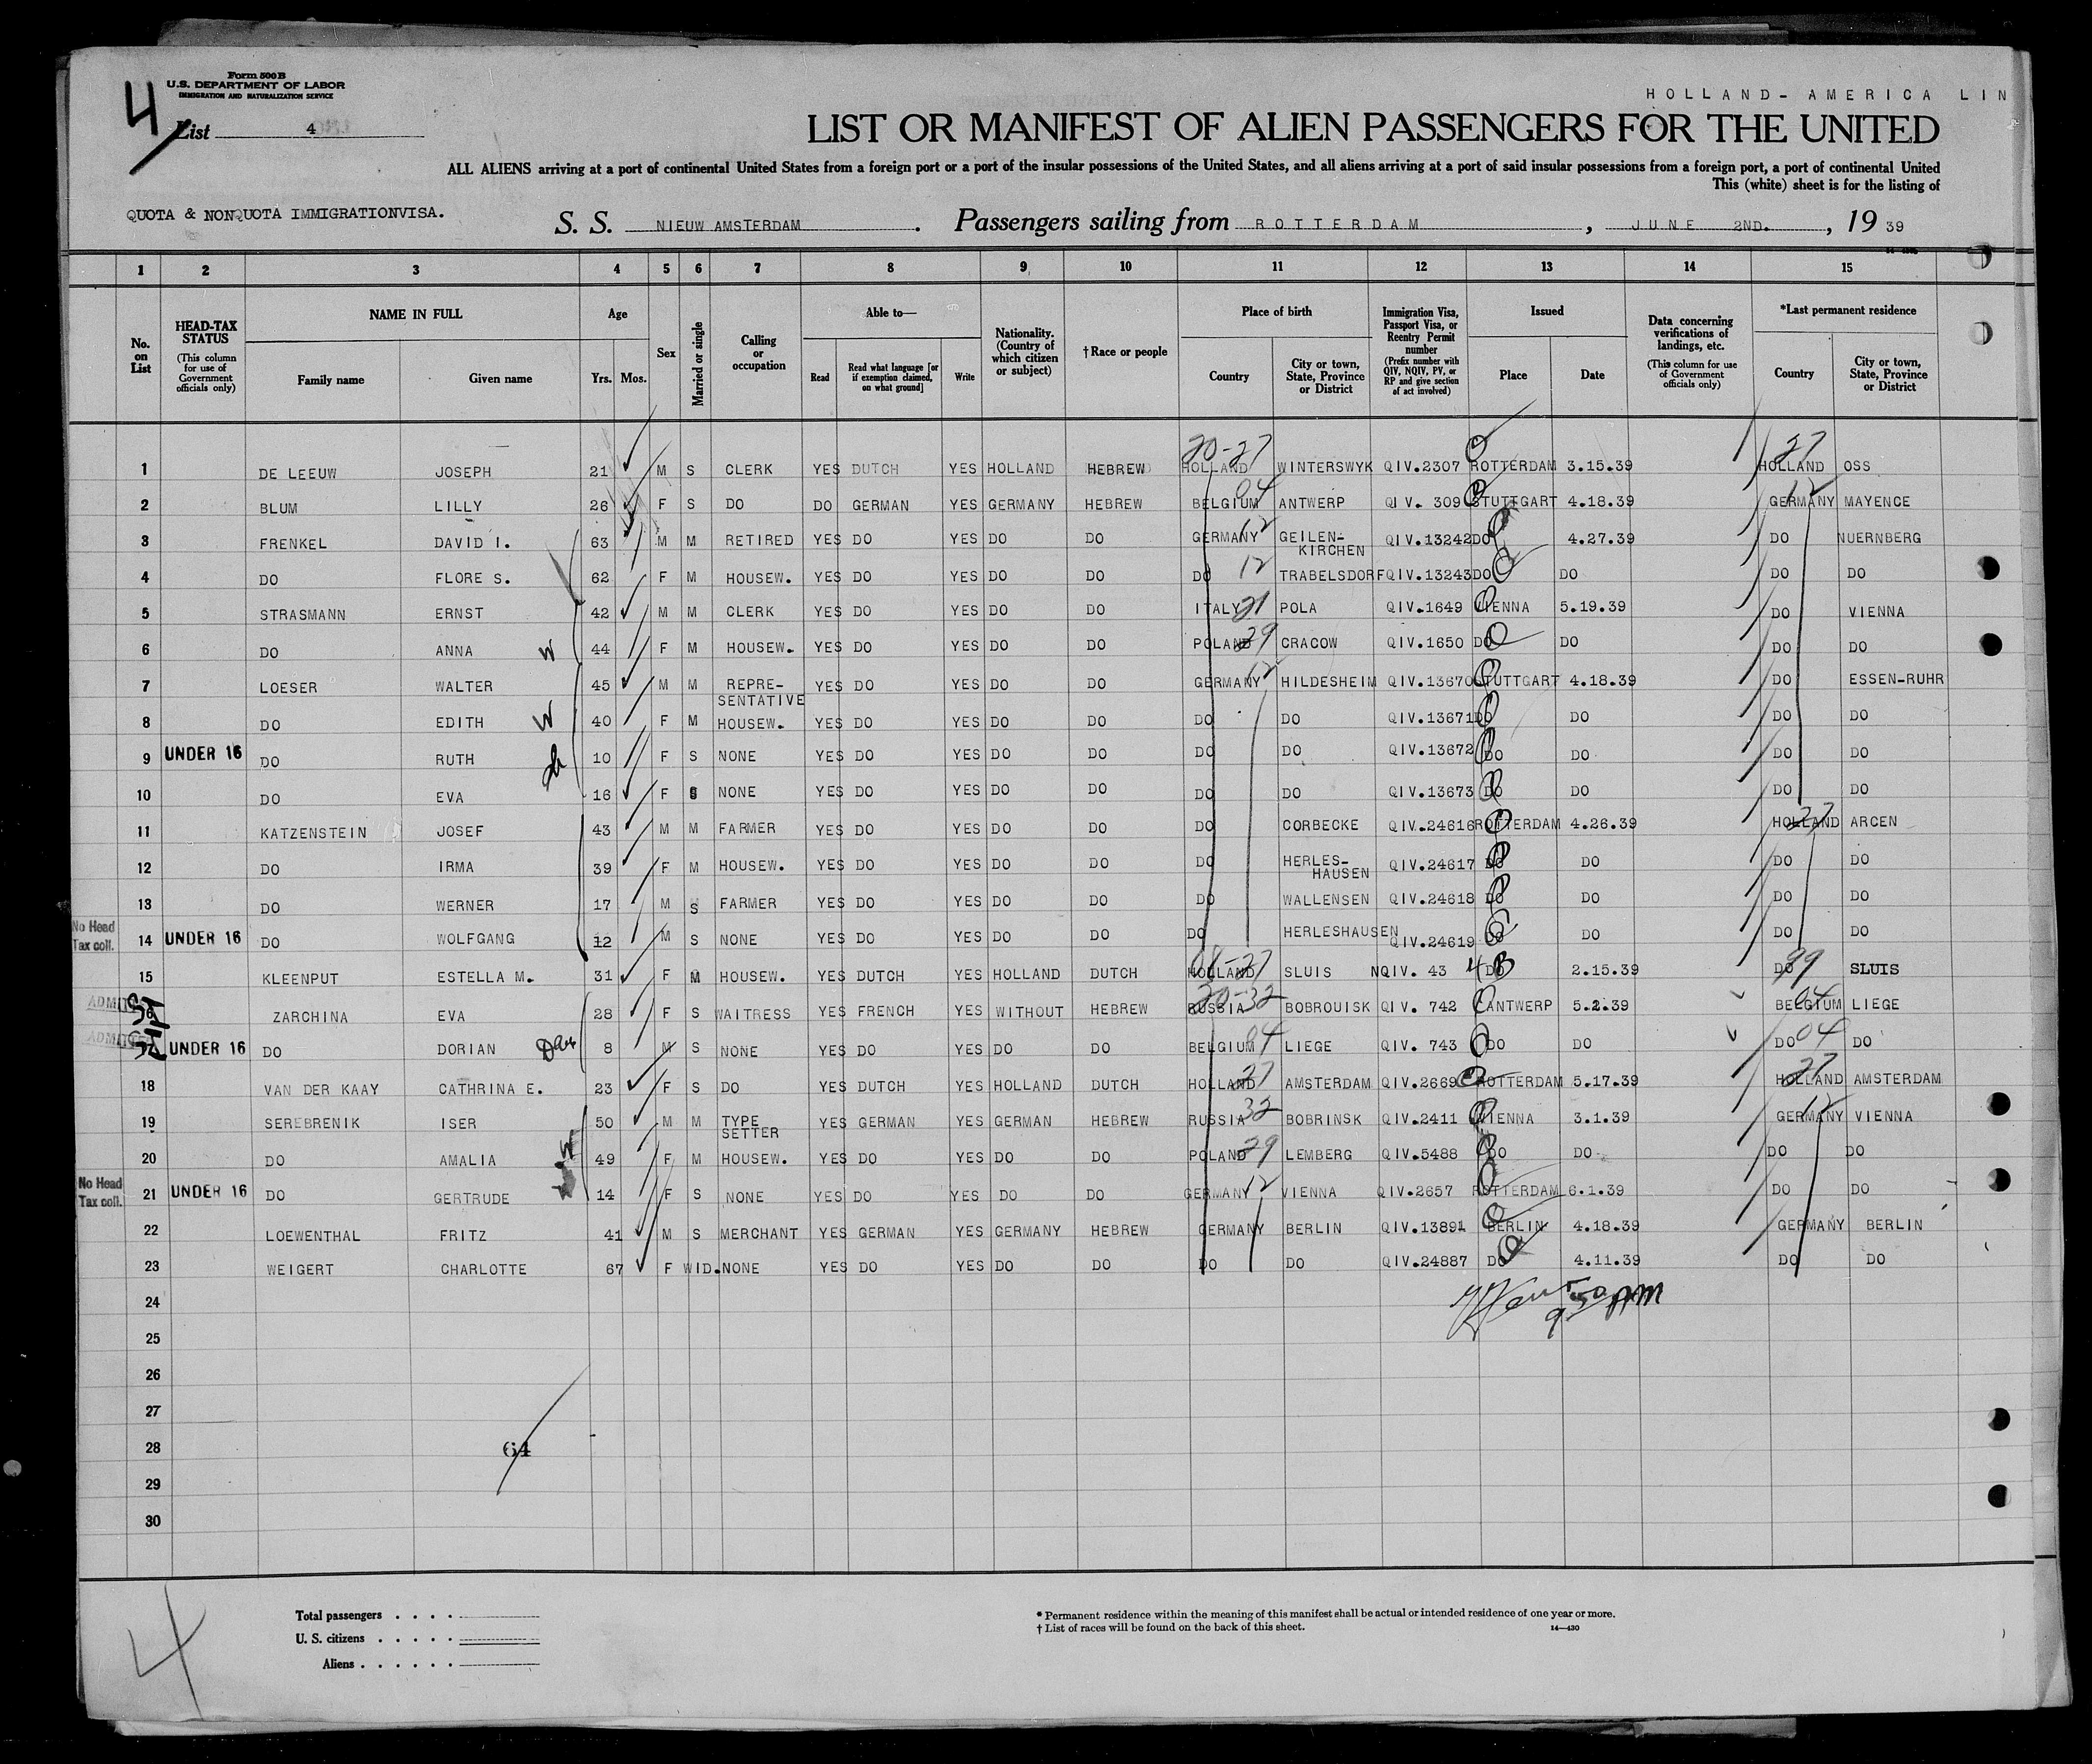 Form 500 B
U.S. DEPARTMENT OF LABOR
IMMIGRATION AND NATURALIZATION SERVICE
4
List 4
HOLLAND- AMERICA LIN
LIST OR MANIFEST OF ALIEN PASSENGERS FOR THE UNITED
ALL ALIENS arriving at a port of continental United States from a foreign port or a port of the insular possessions of the United States, and all aliens arriving at a port of said insular possessions from a foreign port, a port of continental United
This (white) sheet is for the listing of
QUOTA & NONQUOTA IMMIGRATIONVISA.
S. S. NIEUW AMSTERDAM . Passengers sailing from ROTTERDAM , JUNE 2ND. , 19 39
1 2 3 4 5 6 7 8 9 10 11 12 13 14 15
No. on List
HEAD-TAX STATUS (This column for use of Government officials only)
NAME IN FULL
Family name Given name
Age
Yrs. Mos.
Sex
Married or single
Calling or occupation
Able to—
Read Read what language [or if exemption claimed, on what ground] Write
Nationality. (Country of which citizen or subject)
†Race or people
Place of birth
Country City or town, State, Province or District
Immigration Visa, Passport Visa, or Reentry Permit number (Prefix number with QIV, NQIV, PV, or RP and give section of act involved)
Issued
Place Date
Data concerning verifications of landings, etc. (This column for use of Government officials only)
*Last permanent residence
Country City or town, State, Province or District
20-27 27
1 DE LEEUW JOSEPH 21 M S CLERK YES DUTCH YES HOLLAND HEBREW HOLLAND WINTERSWYK QIV.2307 ROTTERDAM 3.15.39 HOLLAND OSS
04 12
2 BLUM LILLY 26 F S DO DO GERMAN YES GERMANY HEBREW BELGIUM ANTWERP QIV. 309 STUTTGART 4.18.39 GERMANY MAYENCE
12
3 FRENKEL DAVID I. 63 M M RETIRED YES DO YES DO DO GERMANY GEILEN-KIRCHEN QIV.13242 DO 4.27.39 DO NUERNBERG
4 DO FLORE S. 62 F M HOUSEW. YES DO YES DO DO DO 12 TRABELSDORF QIV.13243 DO DO DO DO
5 STRASMANN ERNST 42 M M CLERK YES DO YES DO DO ITALY 21 POLA QIV.1649 VIENNA 5.19.39 DO VIENNA
6 DO ANNA W 44 F M HOUSEW. YES DO YES DO DO POLAND 29 CRACOW QIV.1650 DO DO DO DO
7 LOESER WALTER 45 M M REPRE-SENTATIVE YES DO YES DO DO GERMANY 12 HILDESHEIM QIV.13670 STUTTGART 4.18.39 DO ESSEN-RUHR
8 DO EDITH W 40 F M HOUSEW. YES DO YES DO DO DO DO QIV.13671 DO DO DO DO
9 UNDER 16 DO RUTH 10 F S NONE YES DO YES DO DO DO DO QIV.13672 DO DO DO DO
10 DO EVA 16 F S NONE YES DO YES DO DO DO DO QIV.13673 DO DO DO DO
11 KATZENSTEIN JOSEF 43 M M FARMER YES DO YES DO DO DO CORBECKE QIV.24616 ROTTERDAM 4.26.39 HOLLAND 27 ARCEN
12 DO IRMA 39 F M HOUSEW. YES DO YES DO DO DO HERLES-HAUSEN QIV.24617 DO DO DO DO
13 DO WERNER 17 M S FARMER YES DO YES DO DO DO WALLENSEN QIV.24618 DO DO DO DO
No Head Tax coll. 14 UNDER 16 DO WOLFGANG 12 M S NONE YES DO YES DO DO DO HERLESHAUSEN QIV.24619 DO DO DO DO
15 KLEENPUT ESTELLA M. 31 F M HOUSEW. YES DUTCH YES HOLLAND DUTCH HOLLAND SLUIS NQIV. 43 4 DO 2.15.39 DO 99 SLUIS
ADMITTED ZARCHINA EVA 28 F S WAITRESS YES FRENCH YES WITHOUT HEBREW RUSSIA 20-32 BOBROUISK QIV. 742 ANTWERP 5.2.39 BELGIUM 04 LIEGE
ADMITTED UNDER 16 DO DORIAN 8 M S NONE YES DO YES DO DO BELGIUM 04 LIEGE QIV. 743 DO DO DO 04 DO
18 VAN DER KAAY CATHRINA E. 23 F S DO YES DUTCH YES HOLLAND DUTCH HOLLAND 27 AMSTERDAM QIV.2669 ROTTERDAM 5.17.39 HOLLAND 27 AMSTERDAM
19 SEREBRENIK ISER 50 M M TYPE SETTER YES GERMAN YES GERMAN HEBREW RUSSIA 32 BOBRINSK QIV.2411 VIENNA 3.1.39 GERMANY 12 VIENNA
20 DO AMALIA W 49 F M HOUSEW. YES DO YES DO DO POLAND 29 LEMBERG QIV.5488 DO DO DO DO
No Head Tax coll. 21 UNDER 16 DO GERTRUDE 14 F S NONE YES DO YES DO DO GERMANY 12 VIENNA QIV.2657 ROTTERDAM 6.1.39 DO DO
22 LOEWENTHAL FRITZ 41 M S MERCHANT YES GERMAN YES GERMANY HEBREW GERMANY BERLIN QIV.13891 BERLIN 4.18.39 GERMANY BERLIN
23 WEIGERT CHARLOTTE 67 F WID. NONE YES DO YES DO DO DO DO QIV.24887 DO 4.11.39 DO DO
24
25
26
27
28 64
29
30
4
Total passengers . . . .
U. S. citizens . . . . .
Aliens . . . . . .
* Permanent residence within the meaning of this manifest shall be actual or intended residence of one year or more.
† List of races will be found on the back of this sheet. 14—430